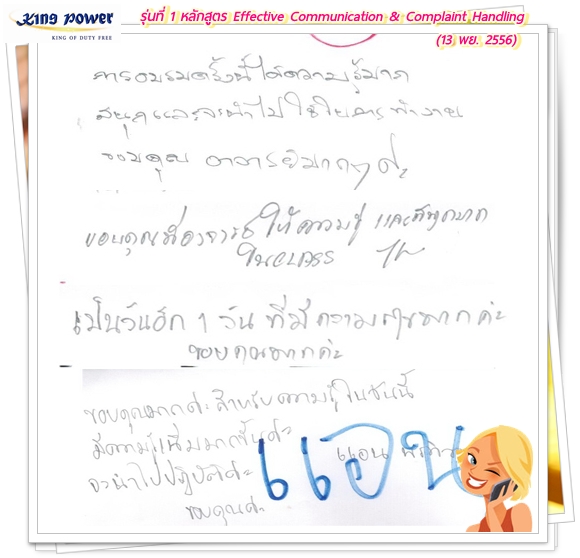 King Power
KING OF DUTY FREE
รุ่นที่ 1 หลักสูตร Effective Communication & Complaint Handling
(13 พย. 2556)
การอบรมครั้งนี้ได้ความรู้มาก
สนุกและจะนำไปใช้ในการทำงาน
ขอบคุณ อาจารย์มากๆ ค่ะ
ขอบคุณที่อาจารย์ให้ความรู้ และสนุกมาก
ในCLASS
เป็นวันอีก 1 วัน ที่มีความสุขมากค่ะ
ขอบคุณมากค่ะ
ขอบคุณมากค่ะสำหรับความรู้ในวันนี้
มีความรู้เพิ่มมากขึ้นค่ะ
จะนำไปปฏิบัติค่ะ
แอน
ขอบคุณค่ะ
แอน